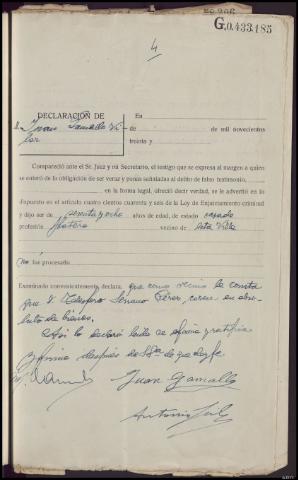 G.0.433.185
4
DECLARACIÓN DE
D. Juan Gamallo
En
de de mil novecientos
treinta y
Compareció ante el Sr. Juez y mi Secretario, el testigo que se expresa al margen a quien
se enteró de la obligación de ser veraz y penas señaladas al delito de falso testimonio.
en la forma legal, ofreció decir verdad, se le advertió en lo
dispuesto en el artículo cuatro cientos cuarenta y seis de la Ley de Enjuiciamiento criminal
y dijo ser de años de edad, de estado casado
profesión vecino de esta Villa
no fue procesado
Examinado convenientemente declara: que como vecino le consta
que D. Serrano Pérez, carece en abso-
luto de bienes.
Así lo declaró leída se afirma y ratifica
y firma después de S.Sª. de que doy fe
Juan Gamallo
Antonio